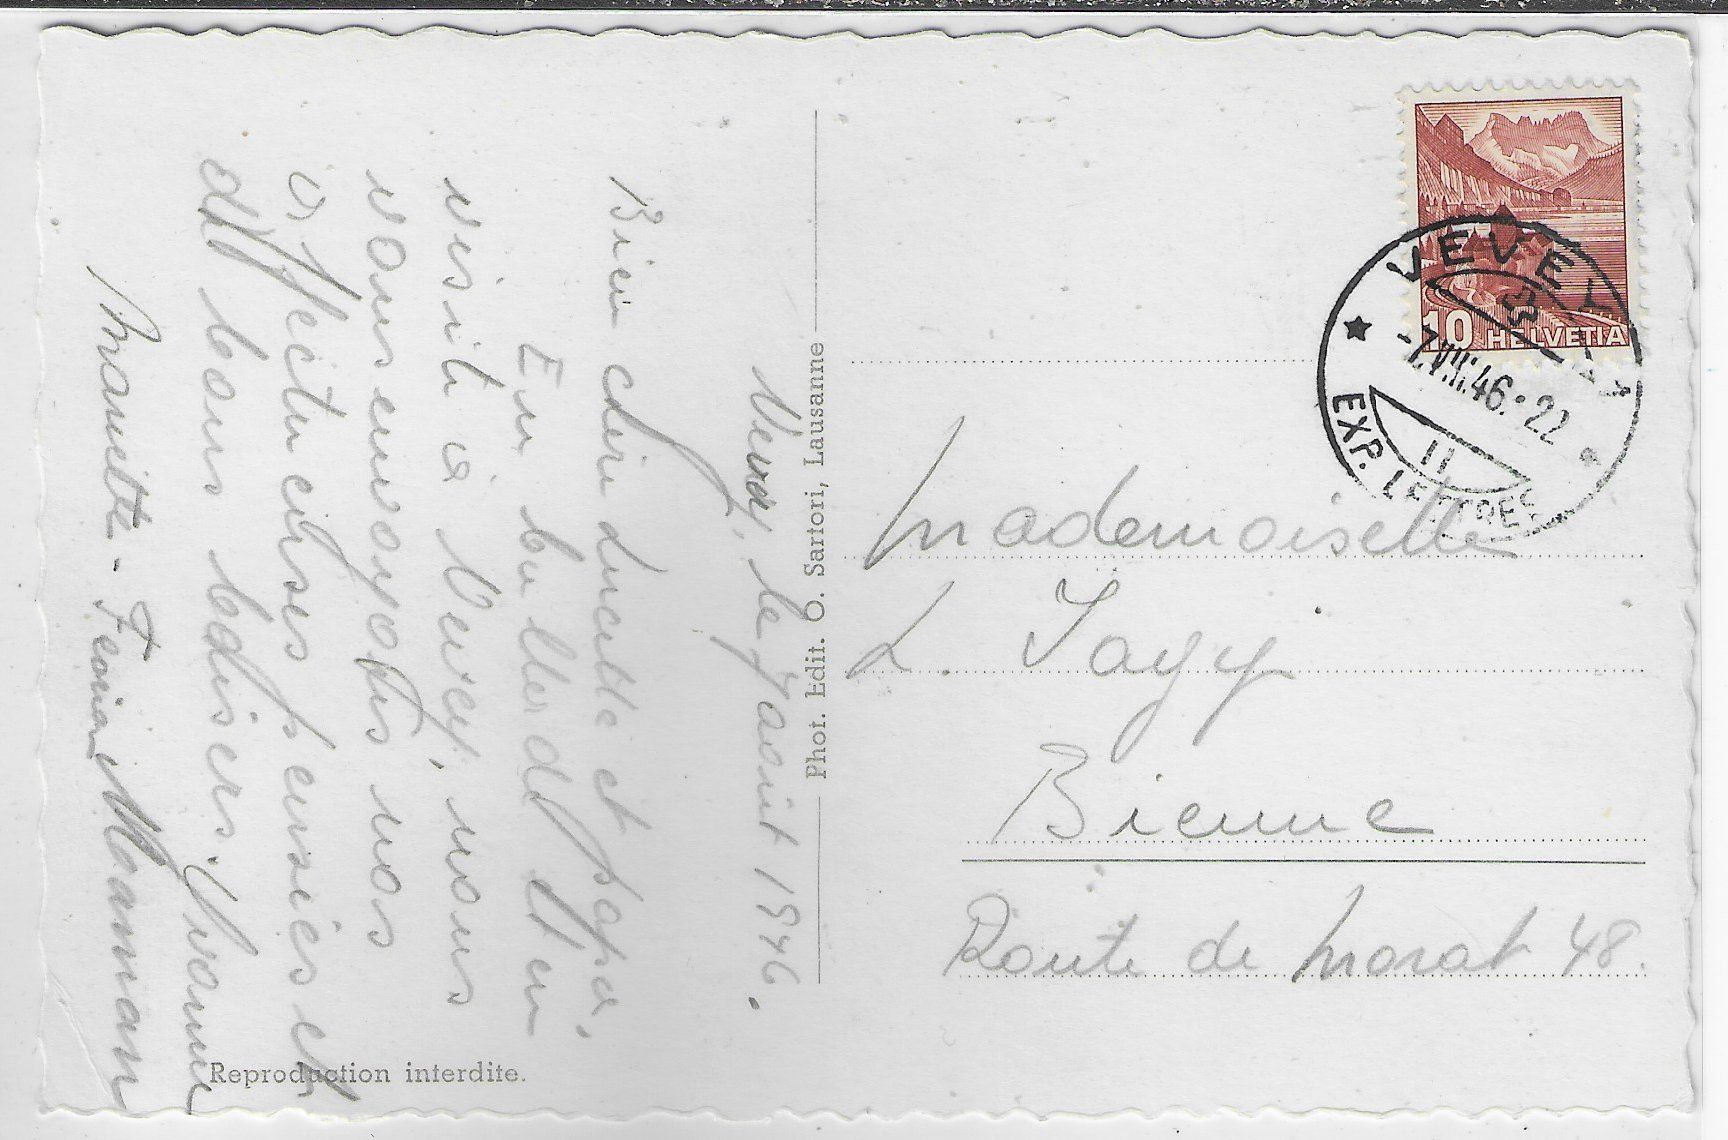 Vevey, le 7 août 1946.
Bien chère Lucette et papa,
En ballade
visite à Vevey, nous
vous envoyons nos
affectueuses pensées et
de bons baisers. Yvonne
Maman
Phot. Edit. O. Sartori, Lausanne
Reproduction interdite.
10 HELVETIA
VEVEY
-7.VIII.46.-22
11
EXP. LETTRES
Mademoiselle
L. Jagy
Bienne
Route de Morat 48.